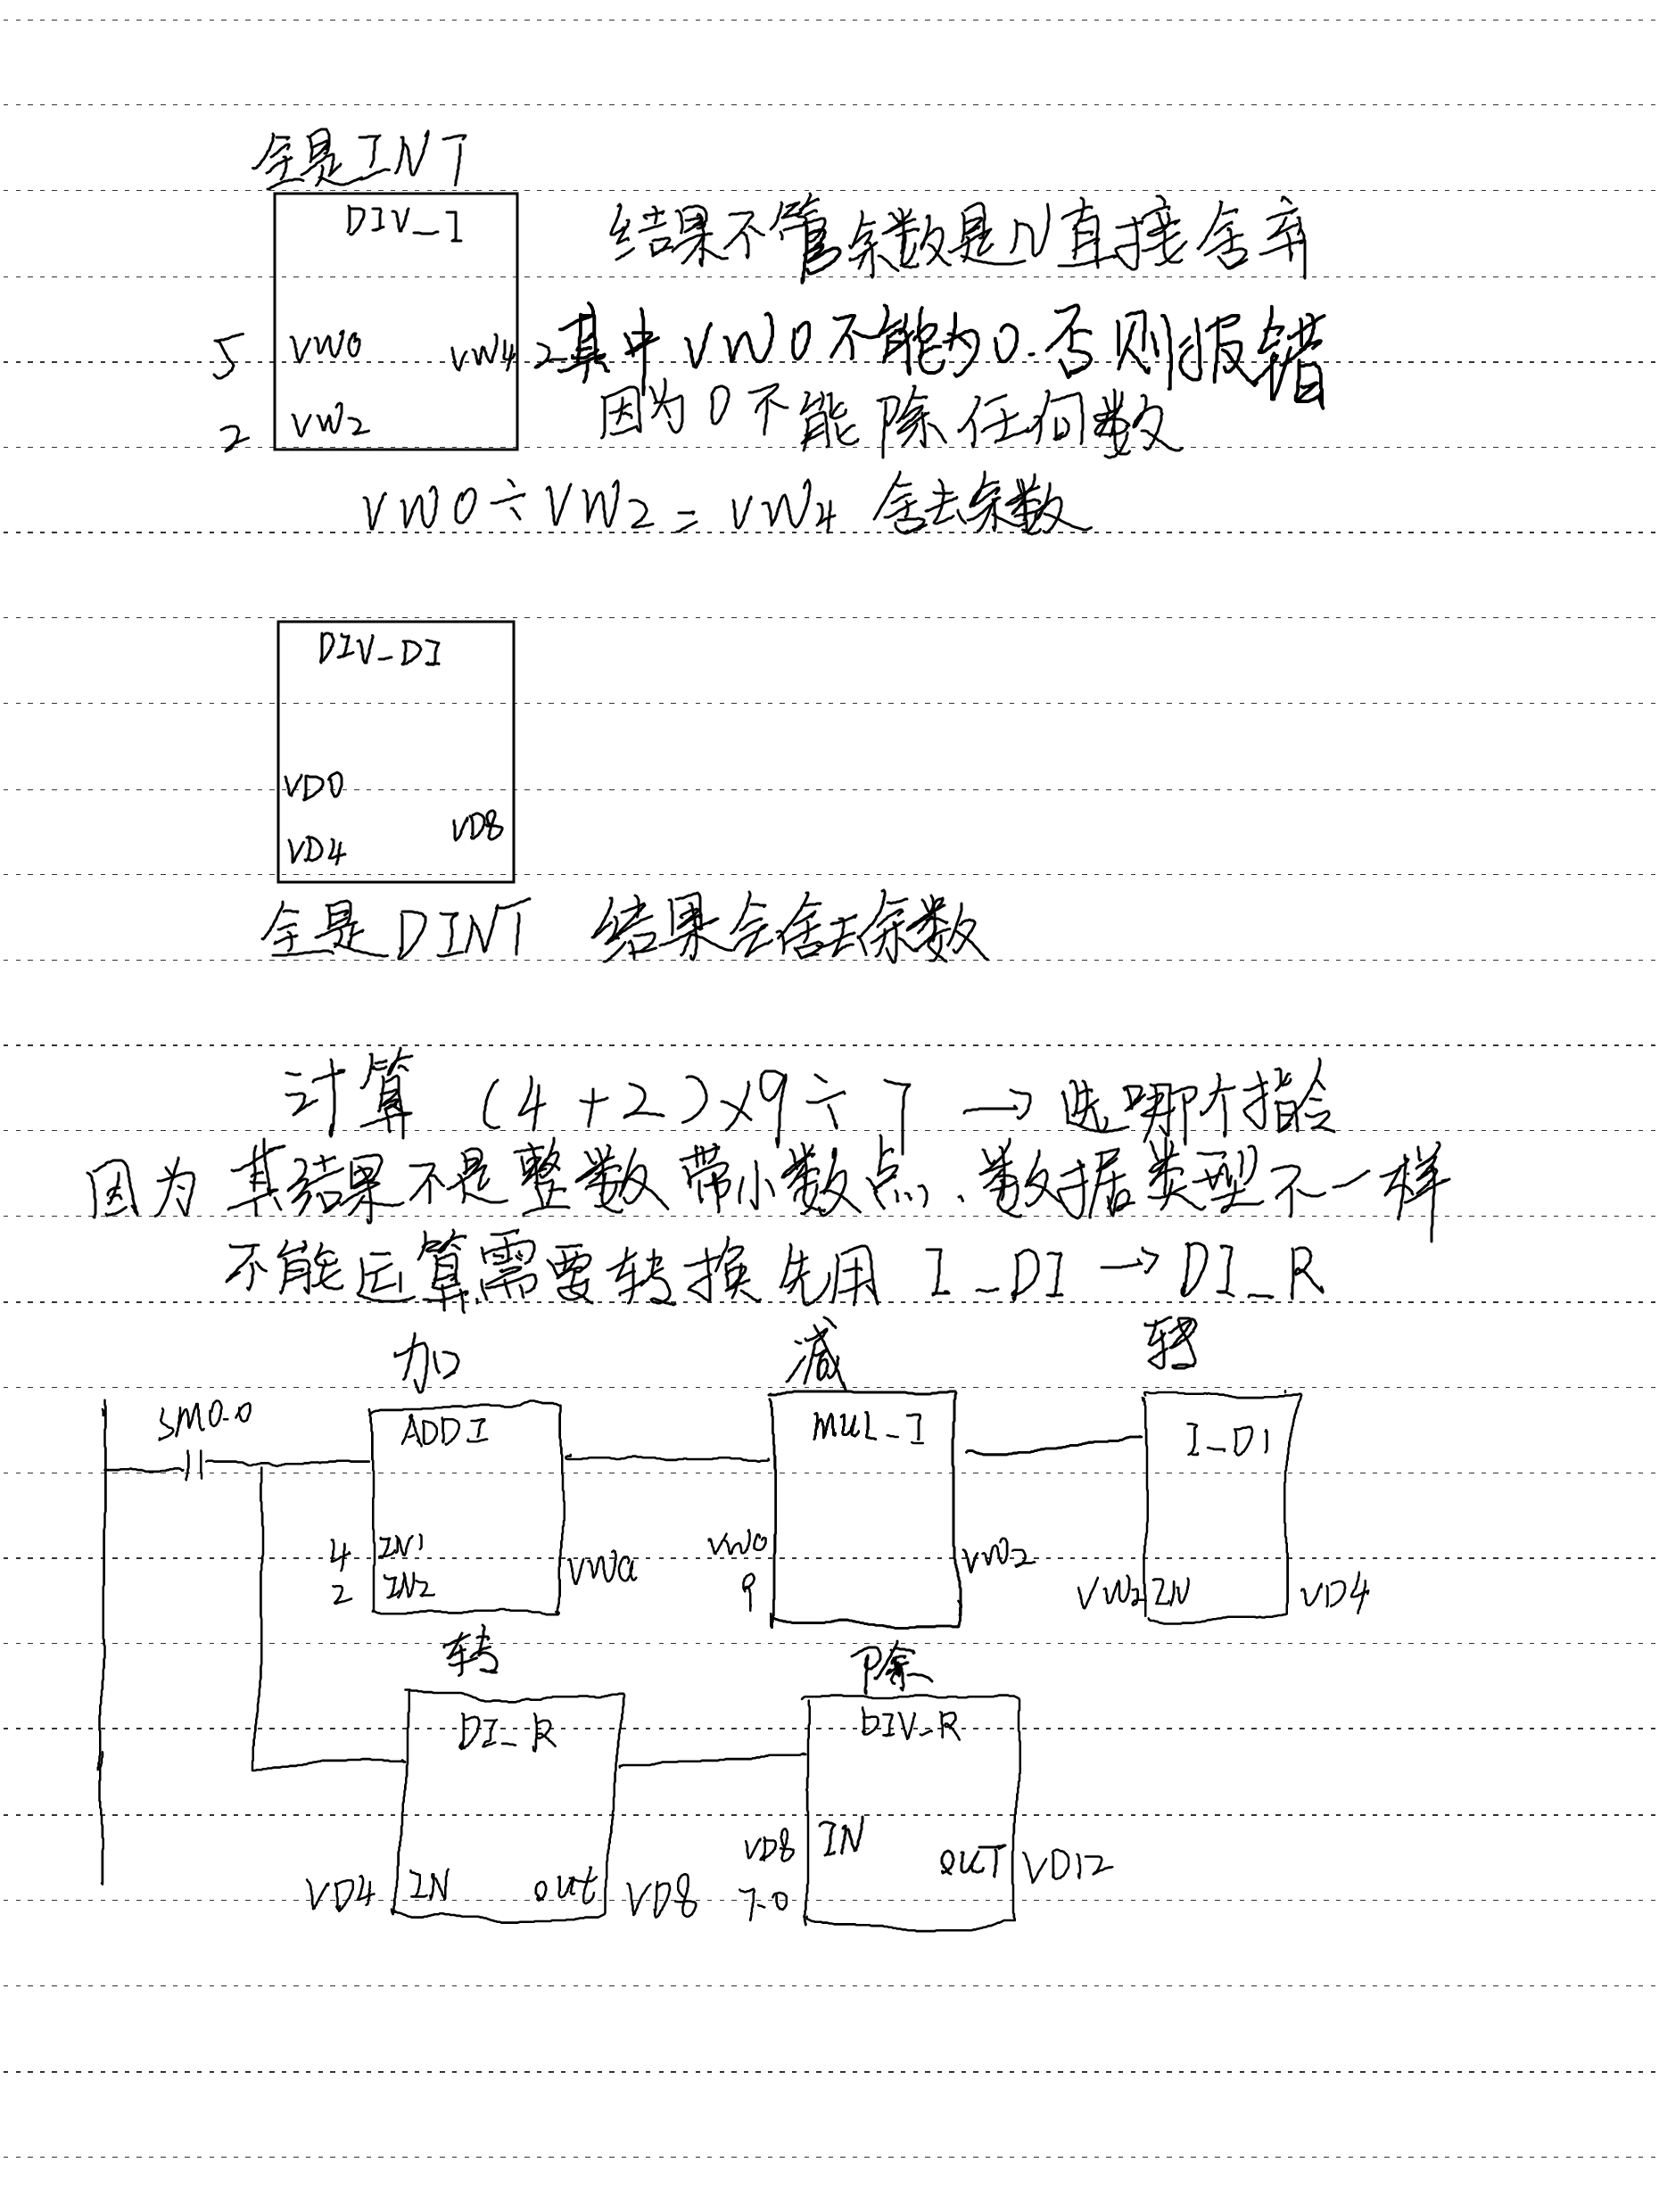 全是INT
DIV_I
结果不管余数是N直接舍弃
5 VW0 VW4 2 其中VW0不能为0.否则报错
2 VW2 因为0不能除任何数
VW0÷VW2=VW4 舍去余数
DIV_DI
VD0
VD8
VD4
全是DINT 结果会舍去余数
计算 (4+2)×9÷7 →选哪个指令
因为其结果不是整数带小数点.数据类型不一样
不能运算需要转换先用 I_DI→DI_R
加 减 转
SM0.0 ADDI MUL_I I_DI
4 IN1 VW0 VW0 VW2
2 IN2 9 VW2 IN VD4
转 除
DI_R DIV_R
VD8 IN OUT VD12
VD4 IN out VD8 7.0